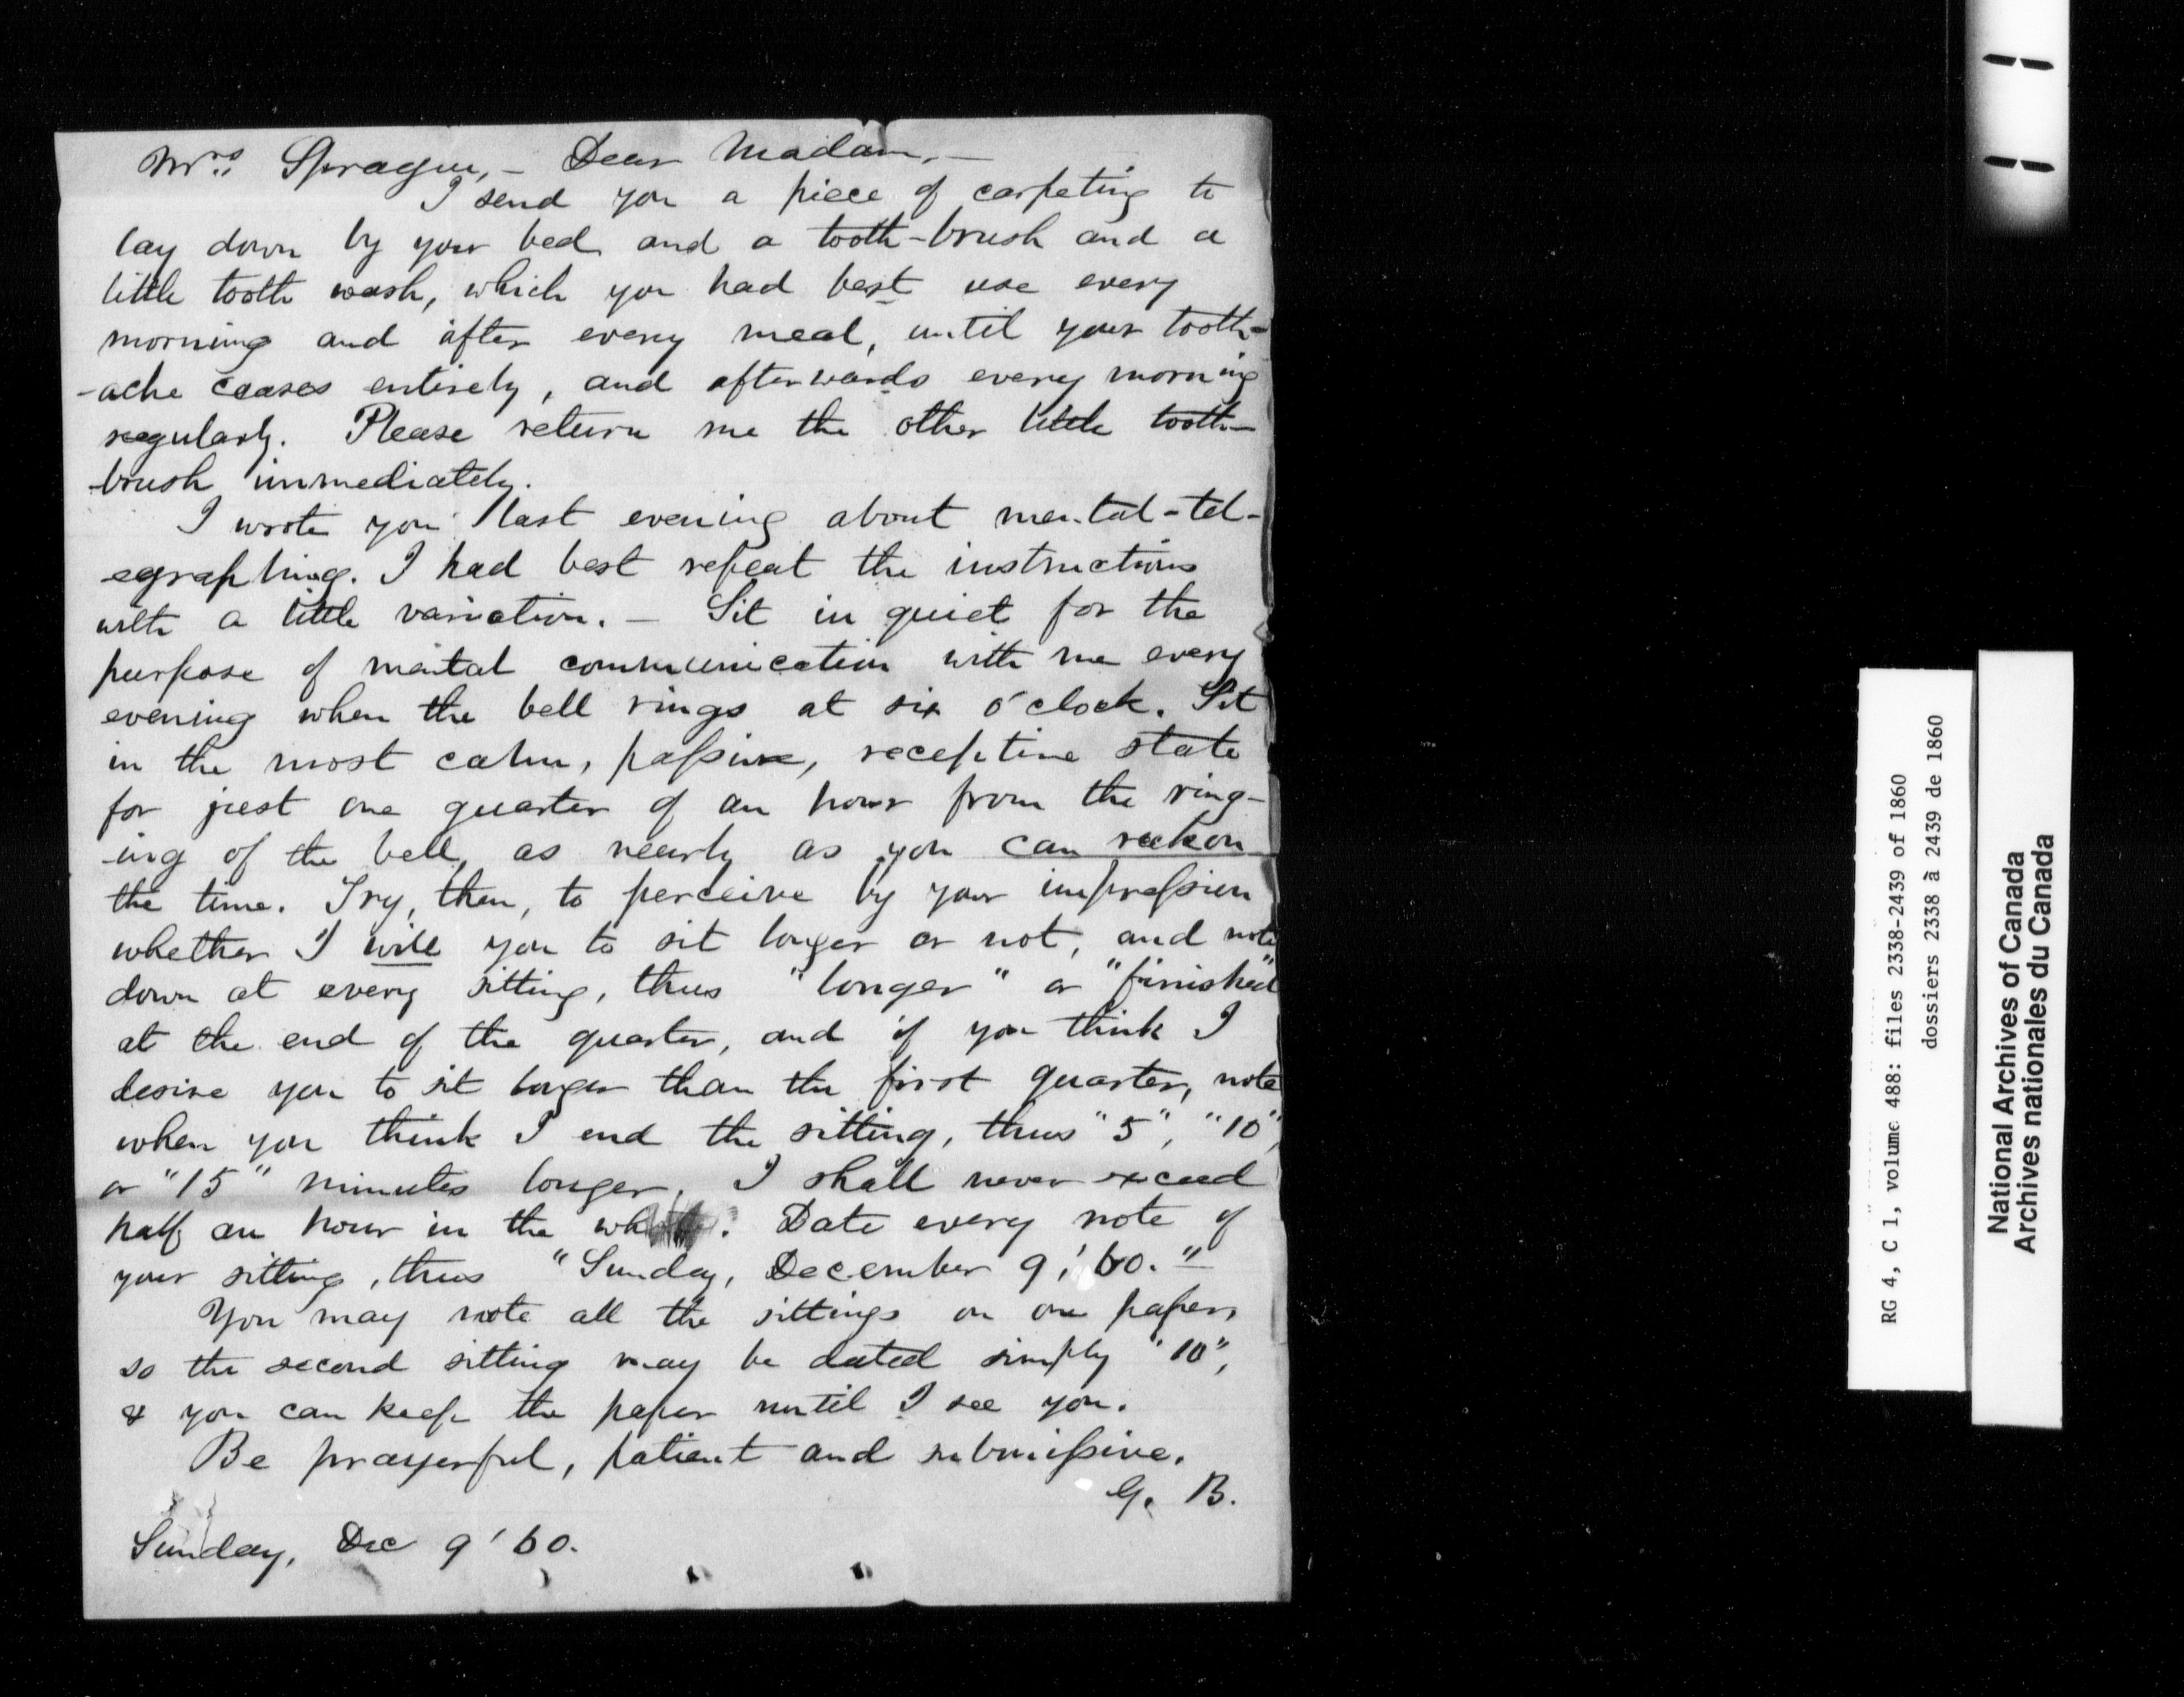 Mrs. Sprague, - Dear Madam, -
I send you a piece of carpeting to
lay down by your bed and a tooth-brush and a
little tooth wash, which you had best use every
morning and after every meal, until your tooth-
-ache ceases entirely, and afterwards every morning
regularly. Please return me the other little tooth-
-brush immediately.
I wrote you last evening about mental-tel-
egraphing. I had best repeat the instructions
with a little variation. - Sit in quiet for the
purpose of mental communication with me every
evening when the bell rings at six o'clock. Sit
in the most calm, passive, receptive state
for just one quarter of an hour from the ring-
-ing of the bell, as nearly as you can reckon
the time. Try, then, to perceive by your impression
whether I will you to sit longer or not, and note
down at every sitting, thus "longer" or "finished"
at the end of the quarter, and if you think I
desire you to sit longer than the first quarter, note
when you think I end the sitting, thus "5", "10",
or "15" minutes longer. I shall never exceed
half an hour in the . Date every note of
your sitting, thus "Sunday, December 9, '60."
You may note all the sittings on one paper,
so the second sitting may be dated simply "10",
& you can keep the paper until I see you.
Be prayerful, patient and submissive.
G. B.
Sunday, Dec 9 '60.
RG 4, C 1, volume 488: files 2338-2439 of 1860
dossiers 2338 à 2439 de 1860
National Archives of Canada
Archives nationales du Canada